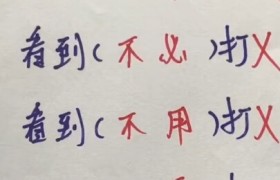 看到(不必)打X
看到(不用)打X